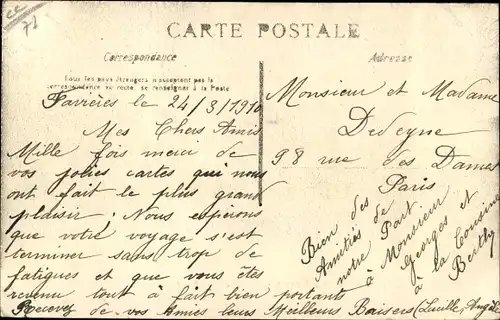 CARTE POSTALE
Correspondance
Tous les pays étrangers n'acceptent pas la
correspondance au recto, se renseigner à la Poste
Adresse
Favrières le 24/3/1910
Mes Chers Amis
Mille fois merci de
vos jolies cartes qui nous
ont fait le plus grand
plaisir; Nous espérons
que votre voyage s'est
terminer sans trop de
fatigues et que vous êtes
revenu tout à fait bien portants
Recevez de vos Amies leurs Meilleurs Baisers (Lucille, Angèle
Monsieur et Madame
Dedeyne
98 rue des Dames
Paris
Bien des
Amitiés de
notre Part
à Monsieur
Georges et
à la Cousine
Berthy